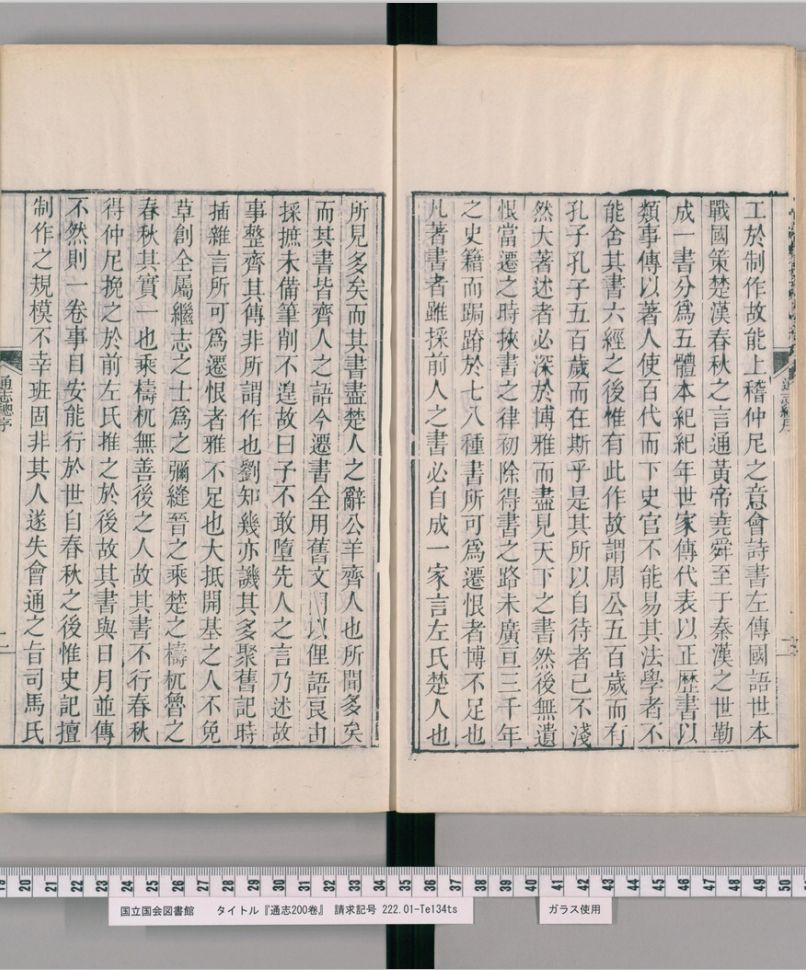 工於制作故能上稽仲尼之意會詩書左傳國語世本
戰國策楚漢春秋之言通黃帝堯舜至于秦漢之世勒
成一書分爲五體本紀紀年世家傳代表以正歷書以
類事傳以著人使百代而下史官不能易其法學者不
能舍其書六經之後惟有此作故謂周公五百歲而有
孔子孔子五百歲而在斯乎是其所以自待者已不淺
然大著述者必深於博雅而盡見天下之書然後無遺
恨當遷之時挾書之律初除得書之路未廣亘三千年
之史籍而跼蹐於七八種書所可爲遷恨者博不足也
凡著書者雖採前人之書必自成一家言左氏楚人也
所見多矣而其書盡楚人之辭公羊齊人也所聞多矣
而其書皆齊人之語今遷書全用舊文間以俚語良由
採摭未備筆削不遑故曰予不敢墮先人之言乃述故
事整齊其傳非所謂作也劉知幾亦譏其多聚舊記時
插雜言所可爲遷恨者雅不足也大抵開基之人不免
草創全屬繼志之士爲之彌縫晉之乘楚之檮杌魯之
春秋其實一也乘檮杌無善後之人故其書不行春秋
得仲尼挽之於前左氏推之於後故其書與日月並傳
不然則一卷事目安能行於世自春秋之後惟史記擅
制作之規模不幸班固非其人遂失會通之旨司馬氏
通志總序
二
国立国会図書館 タイトル『通志200巻』 請求記号 222.01-Te134ts
ガラス使用
19 20 21 22 23 24 25 26 27 28 29 30 31 32 33 34 35 36 37 38 39 40 41 42 43 44 45 46 47 48 49 50